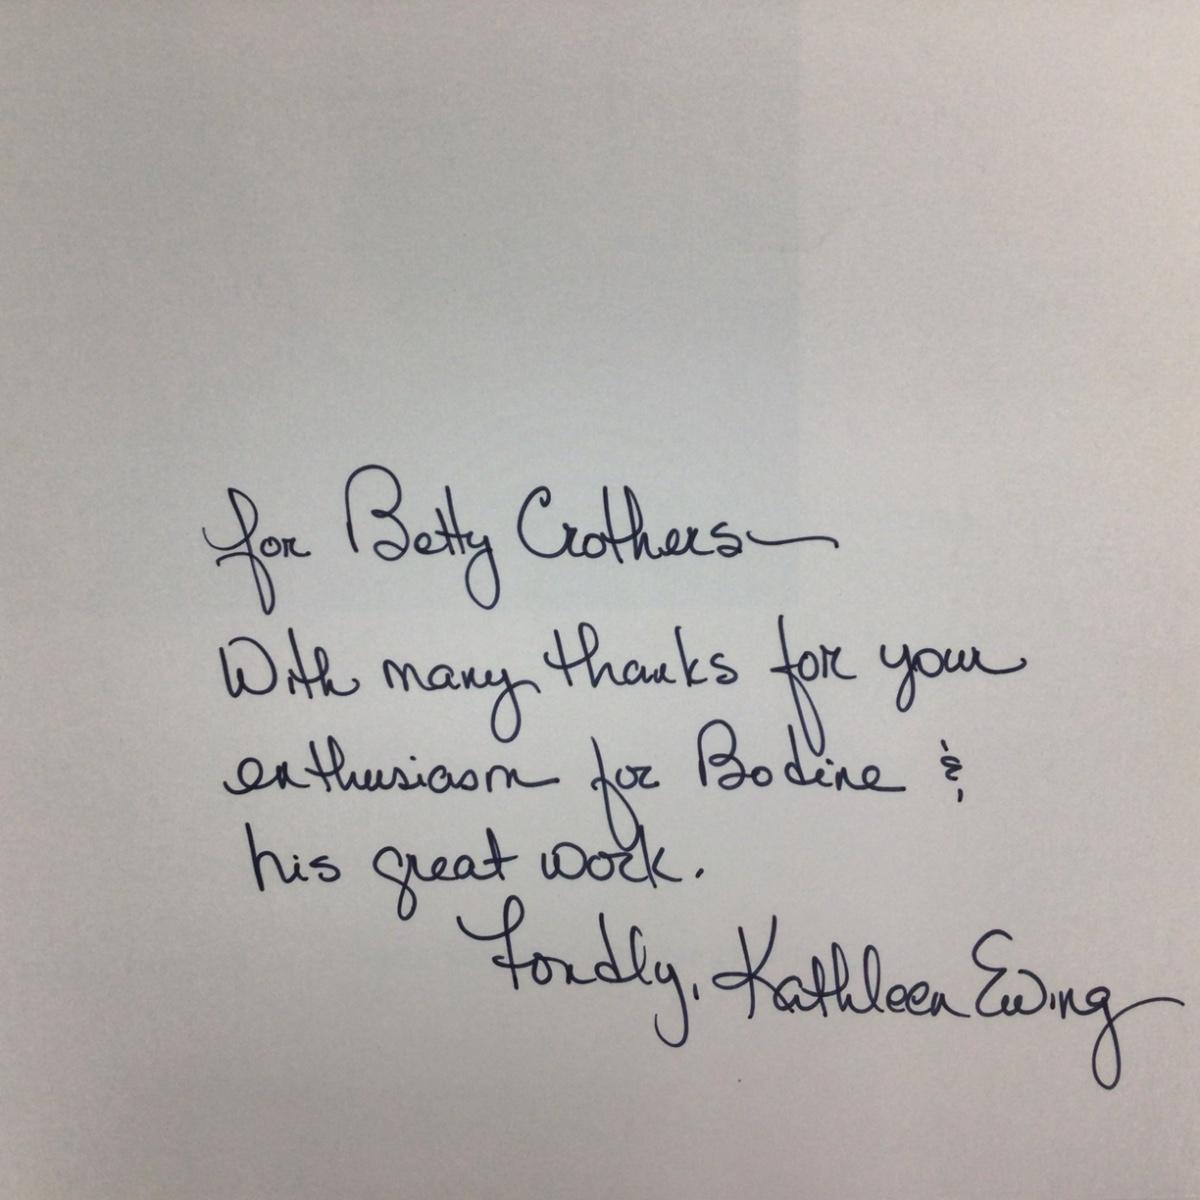 for Betty Crothers—
With many thanks for your
enthusiasm for Bodine &
his great work.
Fondly, Kathleen Ewing